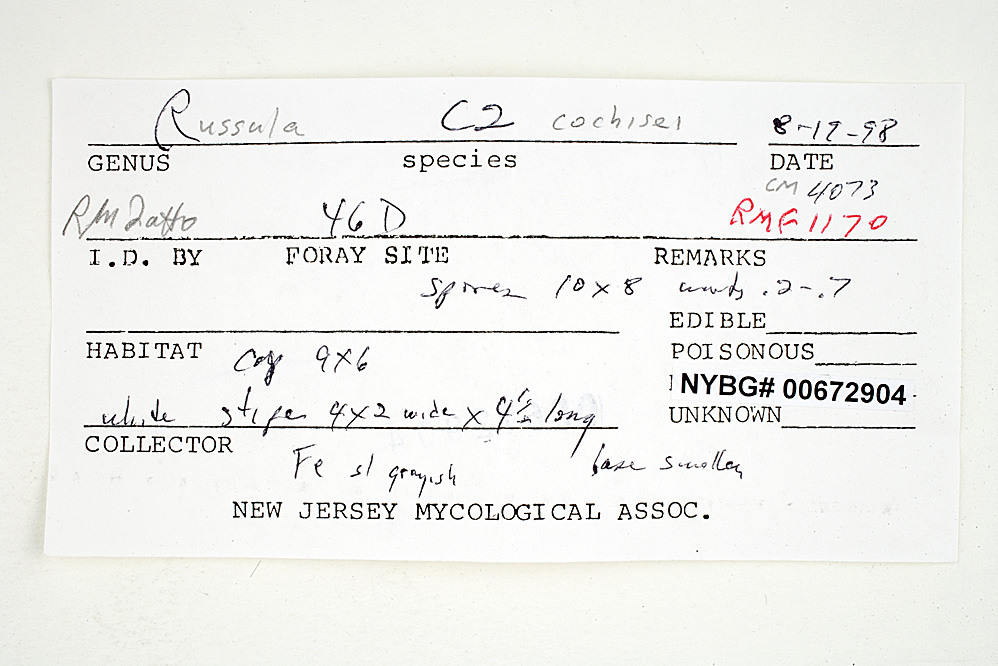 Russula C2 cochisei 8-19-98
GENUS species DATE
CM 4073
RMF 1170
RM Fatto 46 D
I.D. BY FORAY SITE REMARKS
spores 10 x 8 warts .2-.7
EDIBLE
HABITAT POISONOUS
cap 9x6
NYBG# 00672904
white stipe 4x2 wide x 4½ long
UNKNOWN
COLLECTOR
Fe sl grayish base swollen
NEW JERSEY MYCOLOGICAL ASSOC.